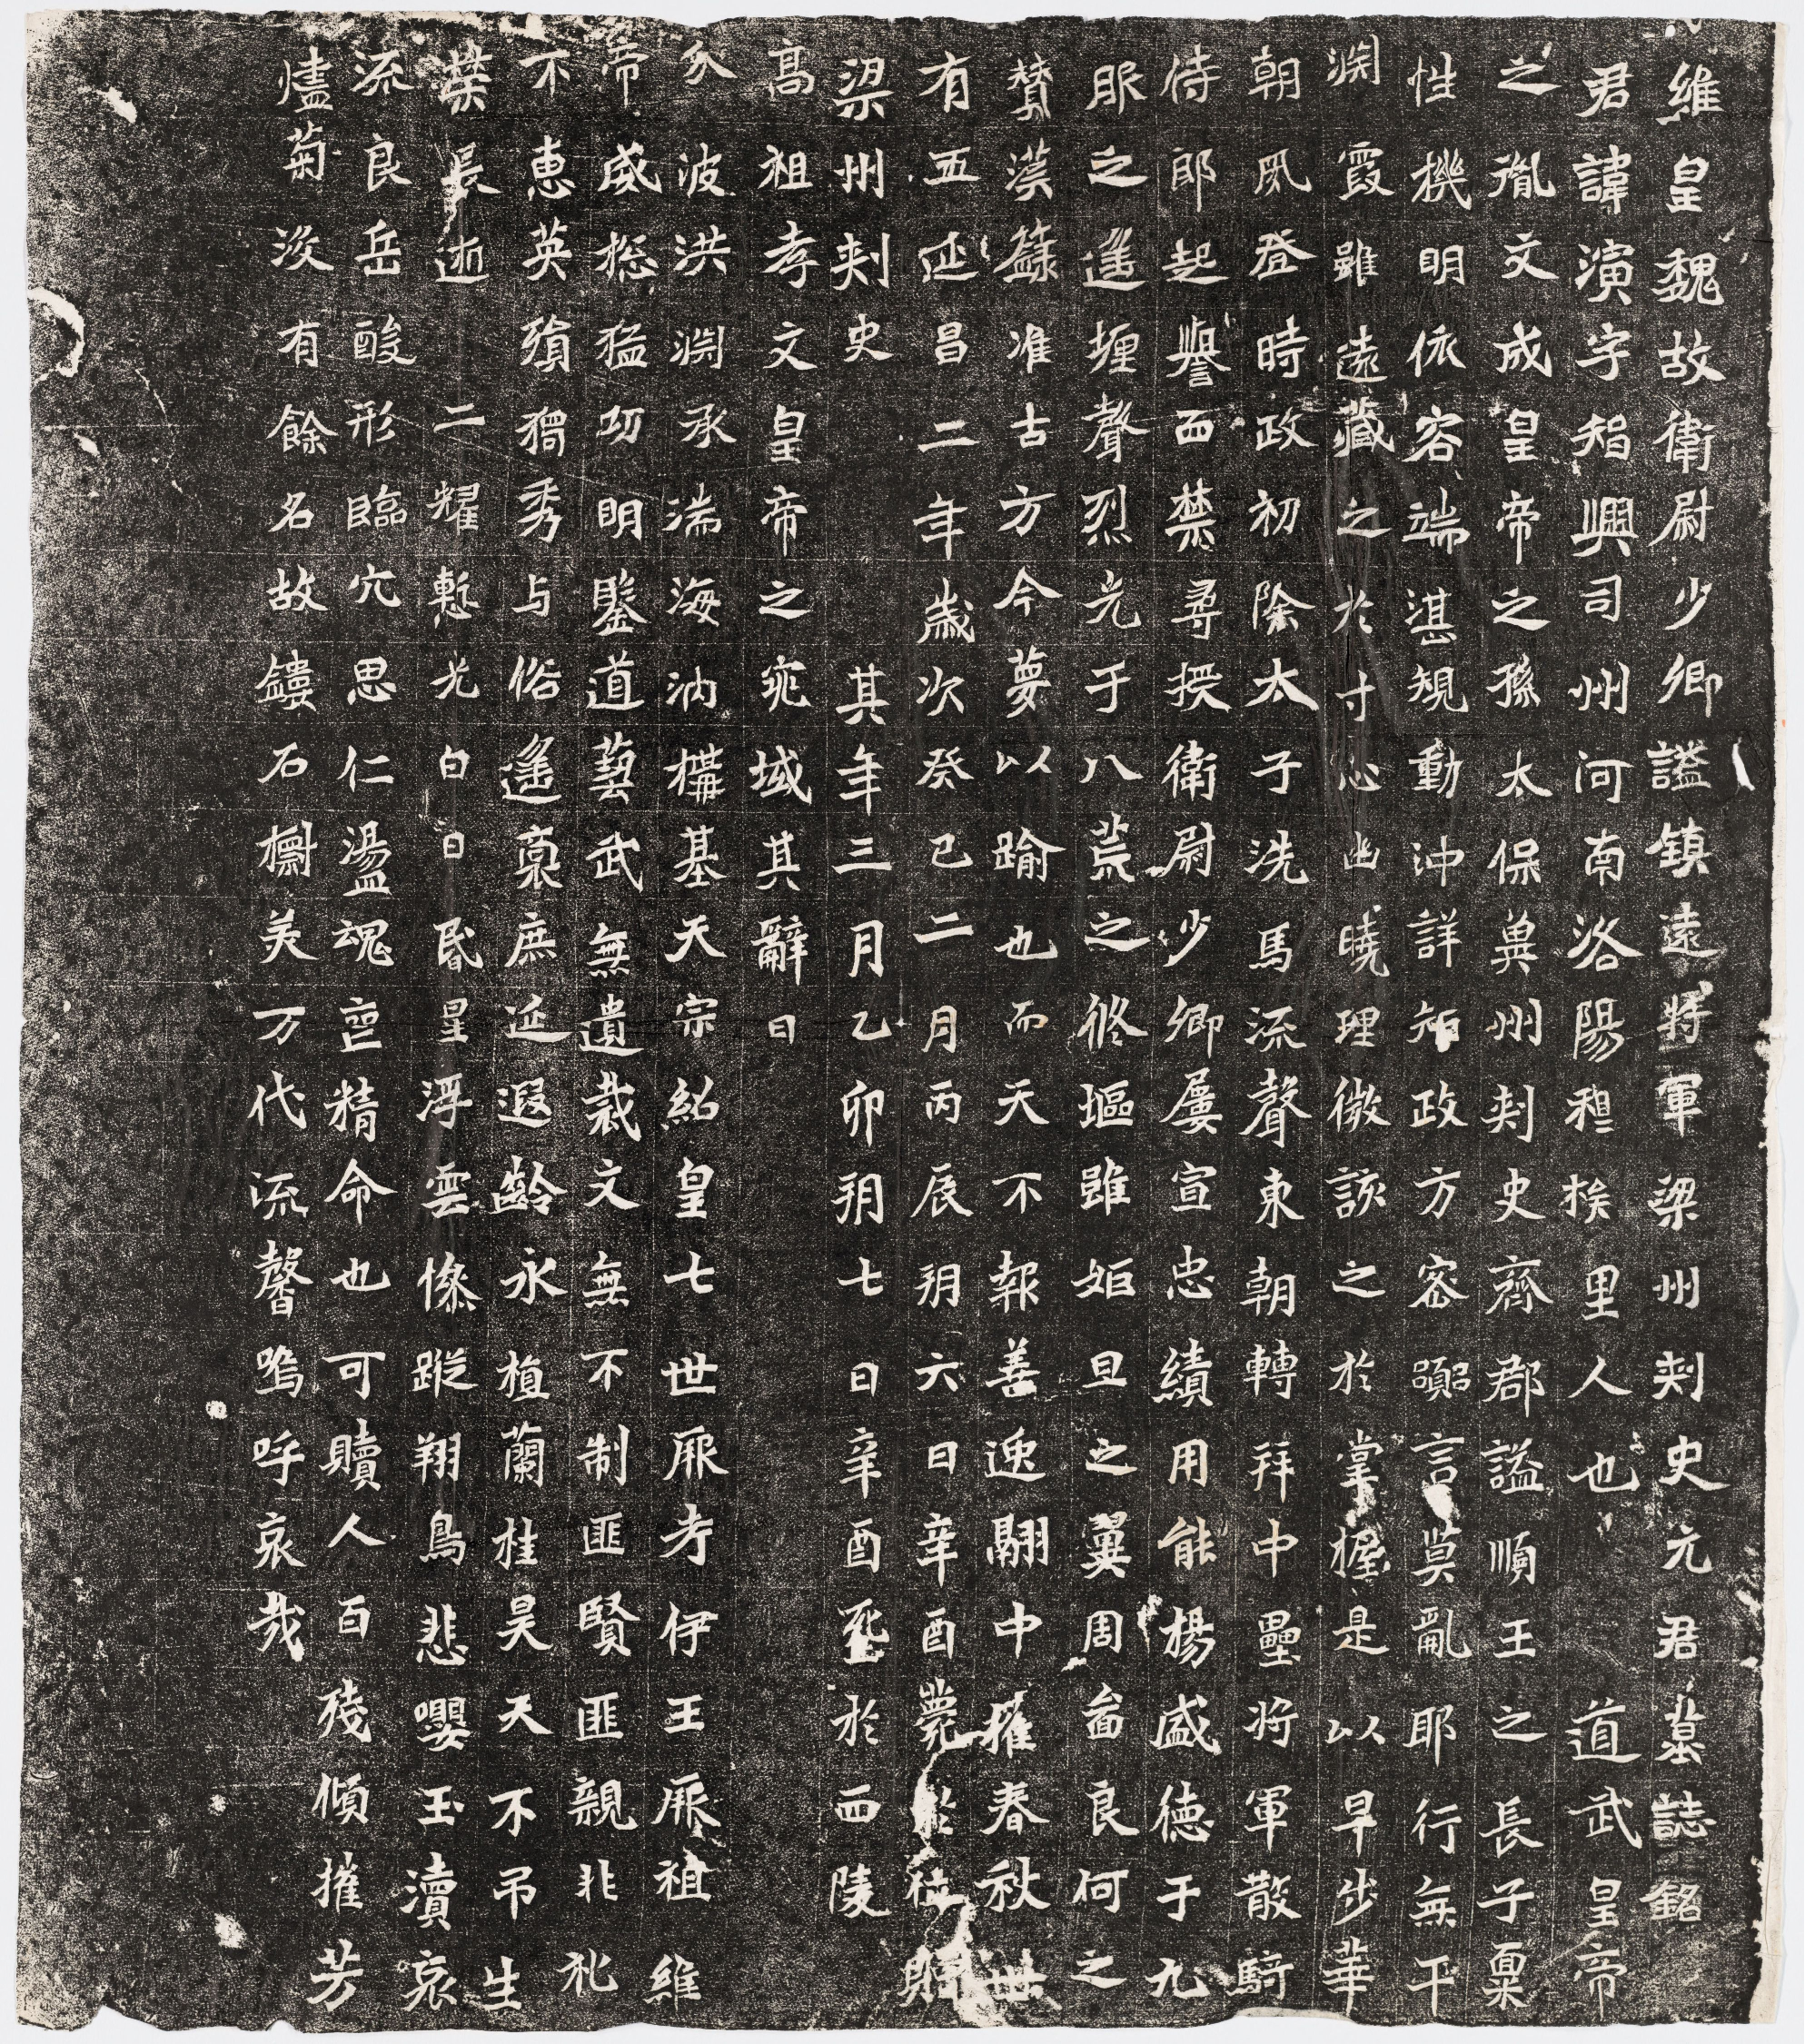 維皇魏故衛尉少卿謚鎮遠將軍梁州刾史元君墓誌銘
君諱演字智興司州河南洛陽穆族里人也 道武皇帝
之胤文成皇帝之孫太保冀州刾史齊郡謚順王之長子稟
性機明依容端湛規動沖詳知政方密言莫亂耶行無平
淵霞雖遠藏之於寸心幽曉理微該之於掌握是以早步華
朝夙登時政初除太子洗馬流聲東朝轉拜中壘將軍散騎
侍郎起譽西禁尋授衛尉少卿屢宣忠績用能揚盛德于九
服之遥堙聲烈光于八荒之修堀雖姬旦之翼周畣良何之
贊漢籙准古方今蔑以踰也而天不報善逸翮中摧春秋卅
有五延昌二年歲次癸巳二月丙辰朔六日辛酉薨於位賵
梁州刾史 其年三月乙卯朔七日辛酉窆於西陵
高祖孝文皇帝之兆域其辭曰
分波洪淵承湍海汭構基天宗紹皇七世厥考伊王厥祖維
帝威摠猛功明鑒道藝武無遺裁文無不制匪賢匪親非礼
不惠英蘋獨秀与俗遥裛庶延遐齡永植蘭桂昊天不吊生
榮長逝 二耀慙光白日昏星浮雲慘蹤翔鳥悲嚶玉瀆哀
流良岳酸形臨穴思仁盪魂亡精命也可贖人百殘傾摧芳
燼菊沒有餘名故鏤石櫥美万代流馨嗚呼哀哉